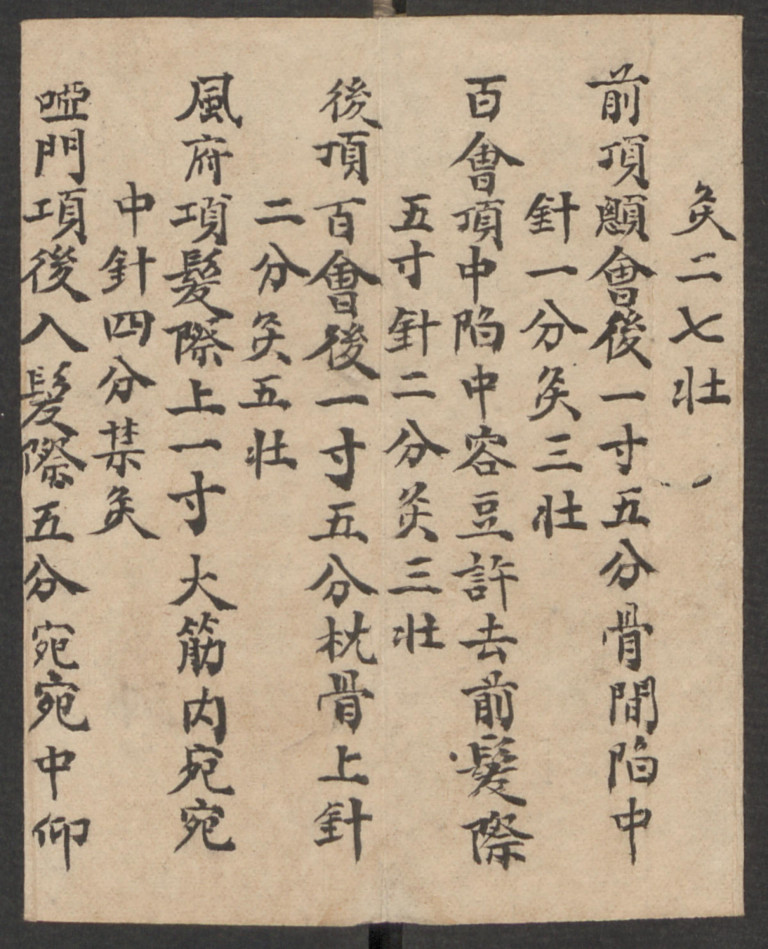 灸二七壯
前項顖會後一寸五分骨間陷中
針一分灸三壯
百會頂中陷中容豆許去前髮際
五寸針二分灸三壯
後頂百會後一寸五分枕骨上針
二分灸五壯
風府項髮際上一寸大筋内宛宛
中針四分禁灸
啞門項後入髮際五分宛宛中仰